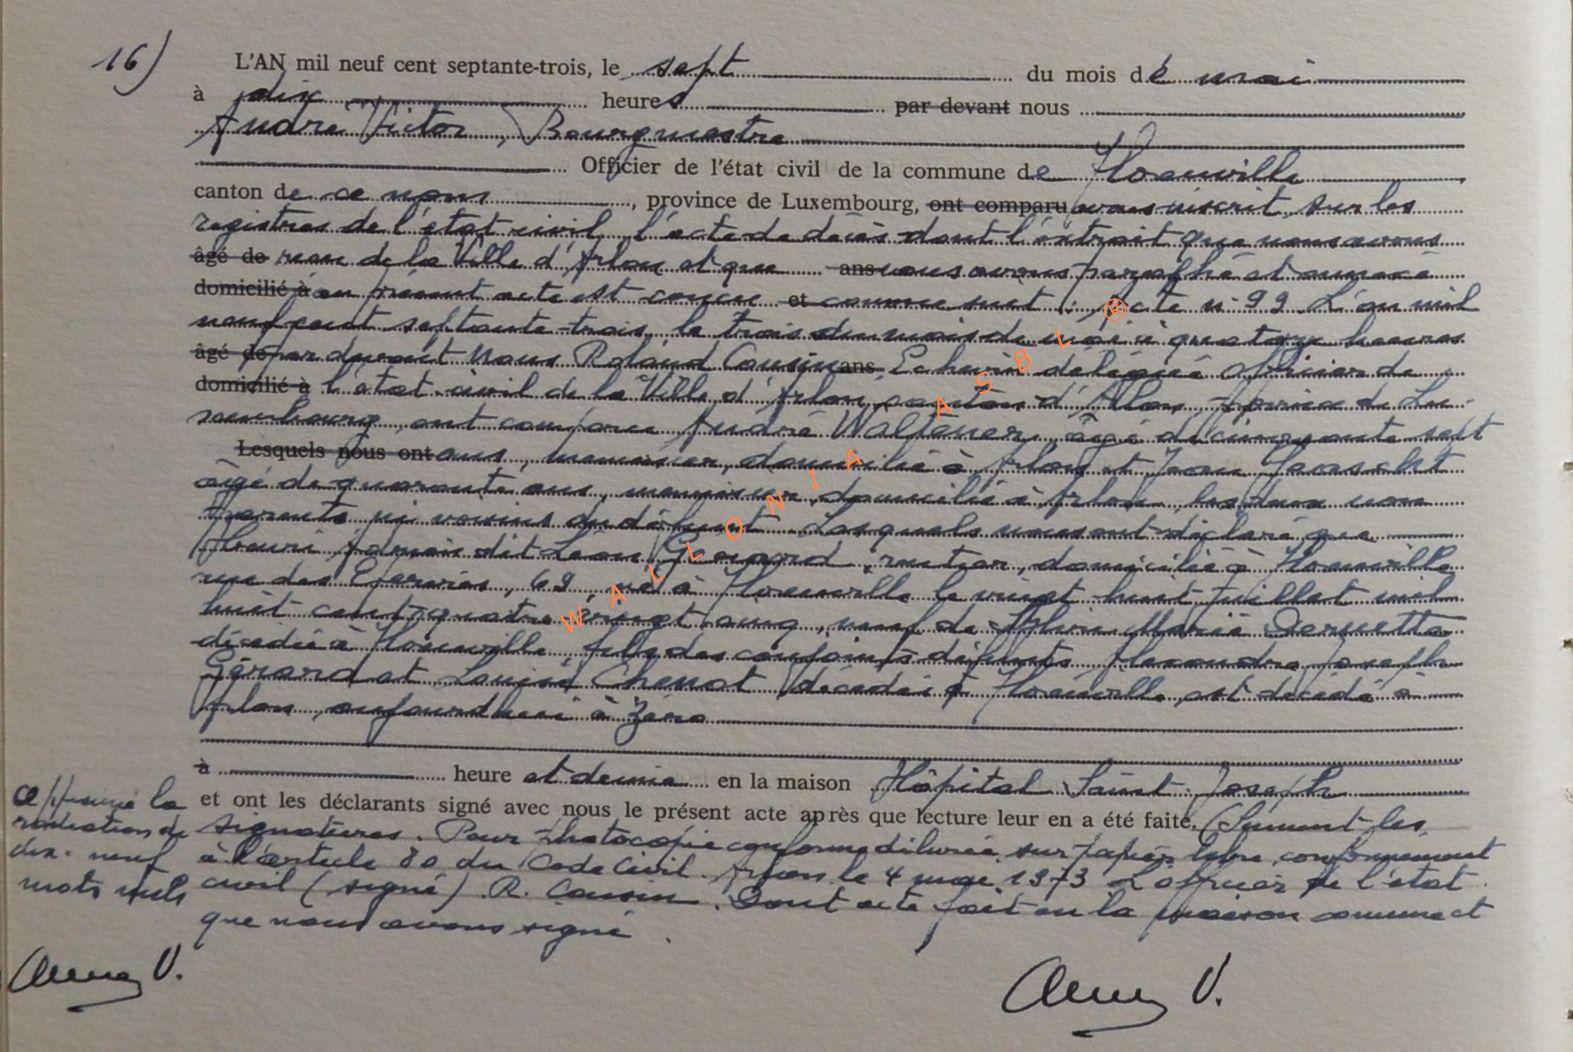 16)
L'AN mil neuf cent septante-trois, le sept du mois de mai
à dix heures par devant nous
André Victor, Bourgmestre
Officier de l'état civil de la commune de Florenville
canton de ce nom, province de Luxembourg, ont comparu avons inscrit sur les
registres de l'état civil, l'acte de décès dont l'extrait que nous avons
âgé de reçu de la Ville d'Arlon et que ans nous avons paraphé et annexé
domicilié à au présent acte est conçu et comme suit : acte n° 99. L'an mil
neuf cent septante-trois, le trois du mois de mai à quatorze heures
âgé de par devant Nous Roland Cousin ans Echevin délégué officier de
domicilié à l'état-civil de la Ville d'Arlon, canton d'Arlon, province de Lu-
xembourg, ont comparu André Waltener, âgé de cinquante sept
Lesquels nous ont ans, menuisier, domicilié à Arlon et Jean
âgé de quarante ans, menuisier, domicilié à Arlon, les deux non
parents ni voisins du défunt. Lesquels nous ont déclaré que
Henri dit Léon Gérard, rentier, domicilié à Florenville
rue des Epérires, 69, né à Florenville le vingt-huit juillet mil
huit cent quatre vingt cinq, veuf de Marie
décédée à Florenville, fils des conjoints défunts Alexandre Joseph
Gérard et Louise Chenot décédés à Florenville, est décédé à
Arlon, aujourd'hui à zéro
à heure et demie en la maison Hôpital Saint-Joseph
et ont les déclarants signé avec nous le présent acte après que lecture leur en a été faite, (Suivent les
signatures. Pour photocopie conforme délivrée sur papier libre, conformément
à l'article 80 du Code Civil. Arlon le 4 mai 1973 L'officier de l'état
civil (signé) R. Cousin. Dont acte fait en la maison commune et
que nous avons signé.
Approuvé la
radiation de
dix-neuf
mots nuls
V.
V.
WALLONIA ASBL ®